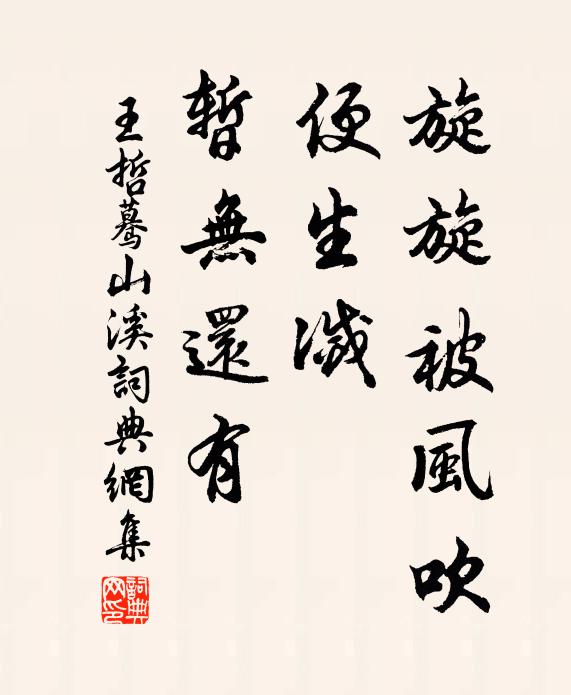 旋旋被風吹
便生滅
暫無還有
王哲驀山溪詞典網集
詞典網印